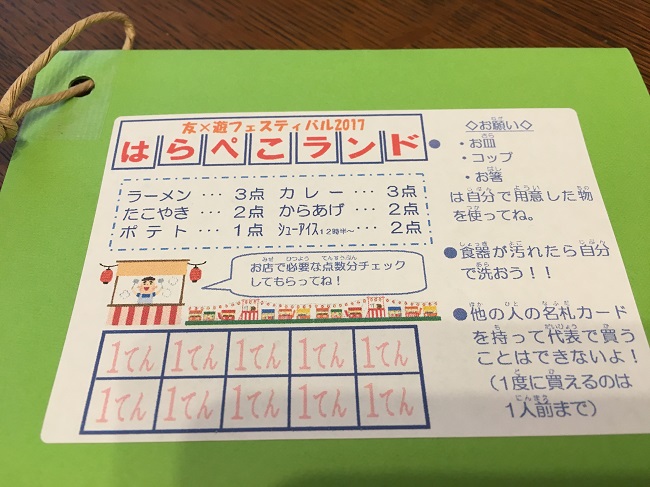 友×遊フェスティバル2017
はらぺこランド
ラーメン … 3点 カレー … 3点
たこやき … 2点 からあげ … 2点
ポテト … 1点 シューアイス12時半~ … 2点
お店で必要な点数分チェック
してもらってね!
1てん 1てん 1てん 1てん 1てん
1てん 1てん 1てん 1てん 1てん
◇お願い◇
・お皿
・コップ
・お箸
は自分で用意した物
を使ってね。
●食器が汚れたら自分
で洗おう!!
●他の人の名札カード
を持って代表で買う
ことはできないよ!
(1度に買えるのは
1人前まで)